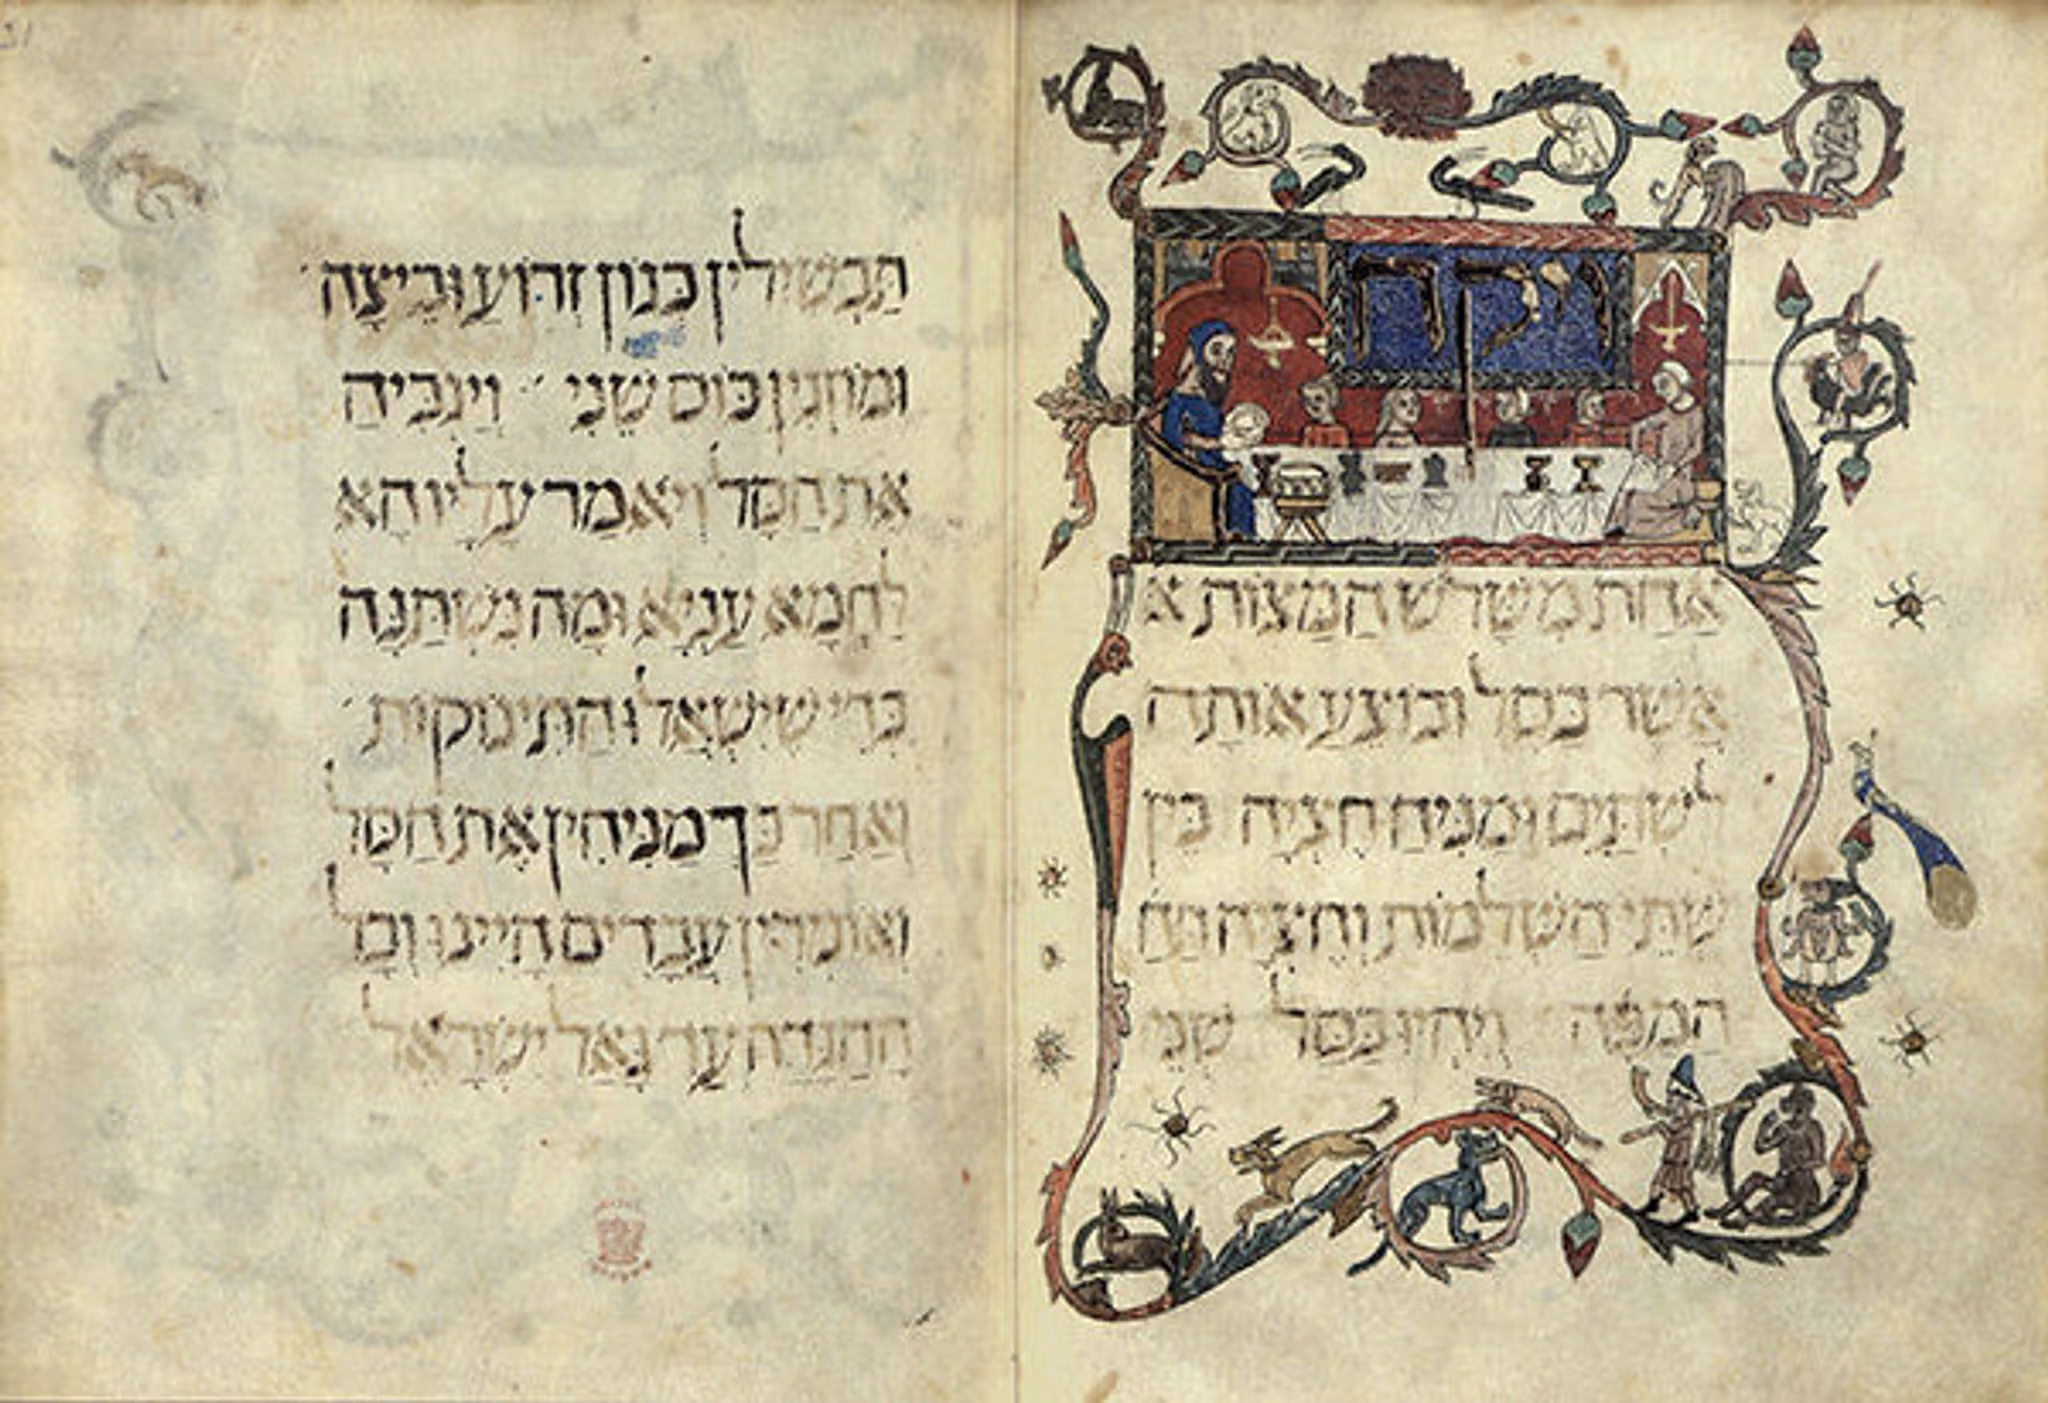 ויקח
אַחַת מִשָּׁלֹשׁ הַמַּצּוֹת א
אֲשֶׁר בַּסַּל וּבוֹצֵעַ אוֹתָהּ
לִשְׁתַּיִם וּמַנִּיחַ חֶצְיָהּ בֵּין
שְׁתֵּי הַשְּׁלֵמוֹת וְחֶצְיָהּ תַּח
הַמַּפָּה וְיִהְיוּ בַּסַּל שְׁנֵי
תַּבְשִׁילִין כְּגוֹן זְרוֹעַ וּבֵיצָה
וּמוֹזְגִין כּוֹס שֵׁנִי וְיַגְבִּיהַּ
אֶת הַסַּל וְיֹאמַר עָלָיו הָא
לַחְמָא עַנְיָא וּמַה נִּשְׁתַּנָּה
כְּדֵי שֶׁיִּשְׁאֲלוּ הַתִּינוֹקוֹת
וְאַחַר כַּךְ מַנִּיחִין אֶת הַסַּל
וְאוֹמְרִין עֲבָדִים הָיִינוּ וְכָל
הַהַגָּדָה עַד גָּאַל יִשְׂרָאֵל